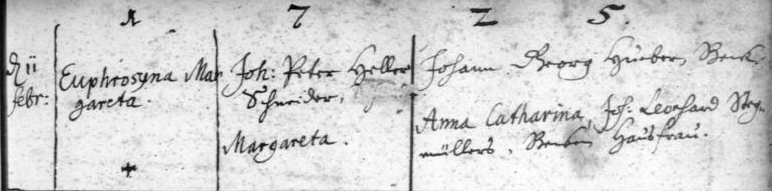 1 7 2 5.
D 11 Febr:
Euphrosyna Mar
gareta.
Joh: Peter Heller
Schneider,
Margareta.
Johann Georg Hueber, Beck.
Anna Catharina, Joh. Leonhard Steg-
müllers, Becken Hausfrau.